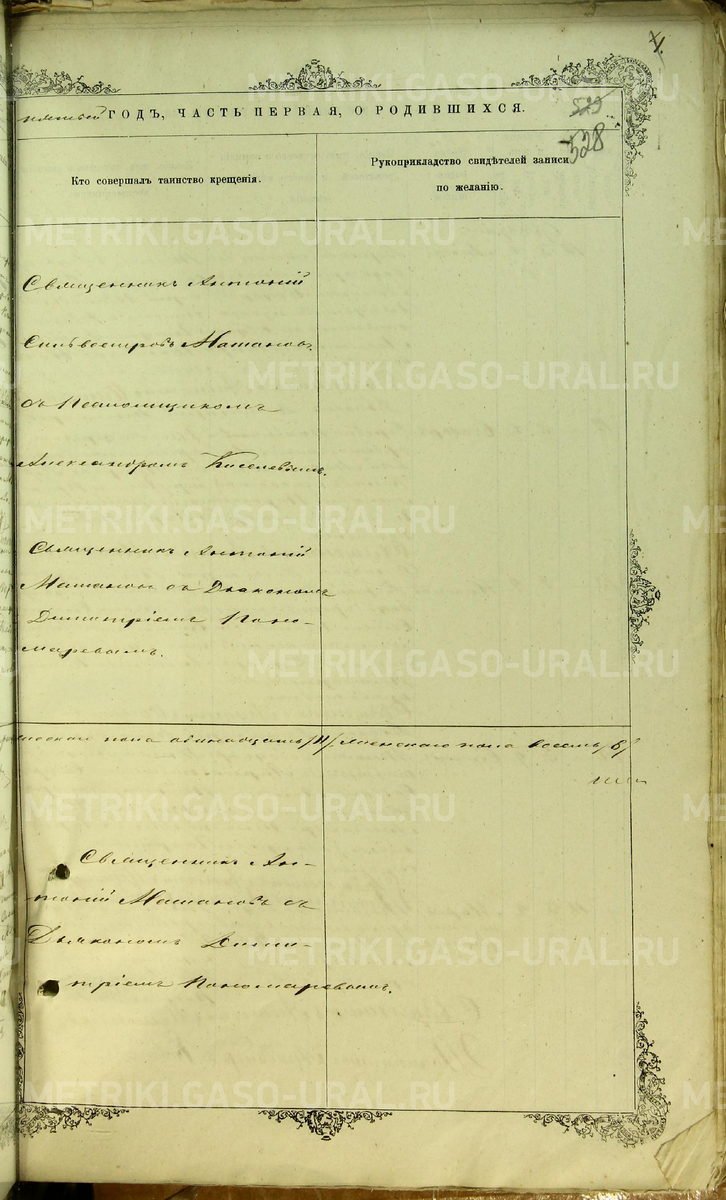 4.
пятый ГОДЪ, ЧАСТЬ ПЕРВАЯ, О РОДИВШИХСЯ.
529
528
Кто совершалъ таинство крещенія.
Рукоприкладство свидѣтелей записи
по желанію.
Священникъ Антоній
Сильвестровъ Матановъ
съ Псаломщикомъ
Александромъ Киселевымъ.
Священникъ Антоній
Матановъ съ Діякономъ
Димитріемъ Поно-
маревымъ.
пола одинадцать /11/, женскаго пола восемь /8/
Священникъ Ан-
тоній Матановъ съ
Діякономъ Дими-
тріемъ Пономаревымъ.
METRIKI.GASO-URAL.RU